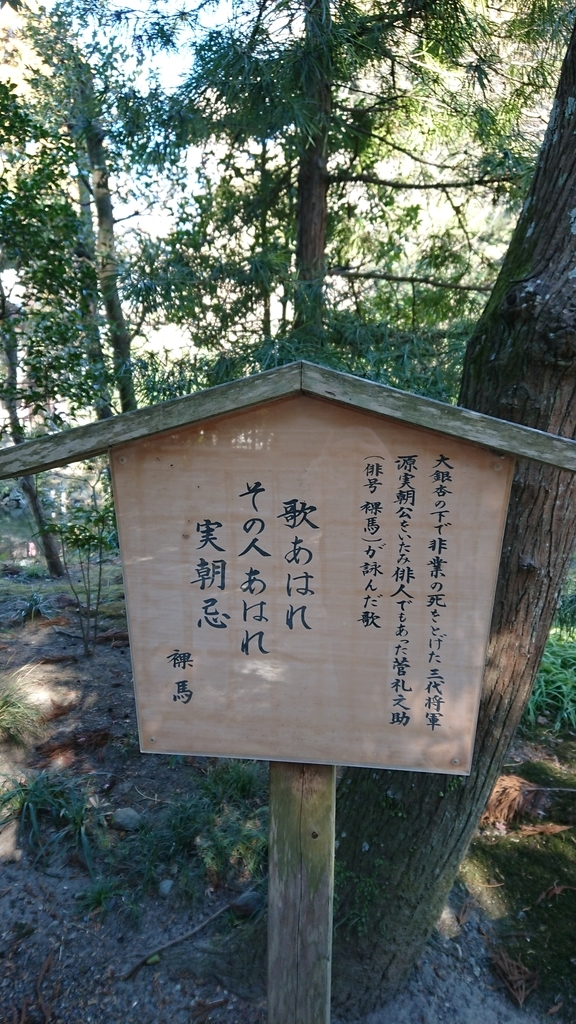 大銀杏の下で非業の死をとげた三代将軍
源実朝公をいたみ俳人でもあった菅礼之助
(俳号 裸馬)が詠んだ歌
歌あはれ
その人あはれ
実朝忌
裸馬